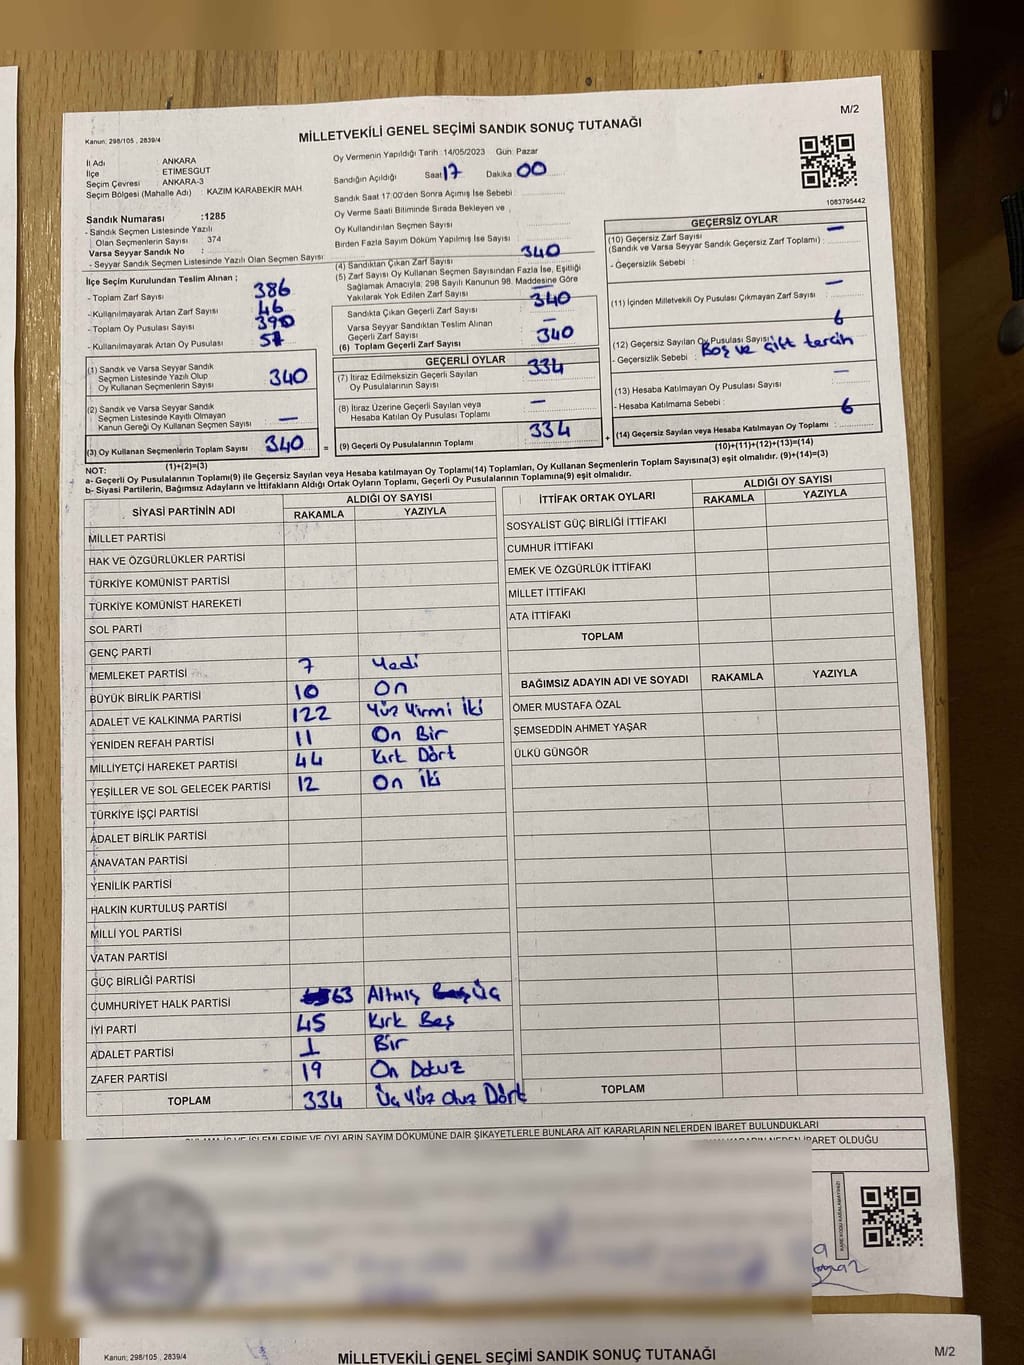 M/2
Kanun; 298/105 , 2839/4
MİLLETVEKİLİ GENEL SEÇİMİ SANDIK SONUÇ TUTANAĞI
İl Adı : ANKARA
İlçe : ETİMESGUT
Seçim Çevresi : ANKARA-3
Seçim Bölgesi (Mahalle Adı) : KAZIM KARABEKİR MAH.
Sandık Numarası :1285
- Sandık Seçmen Listesinde Yazılı
Olan Seçmenlerin Sayısı : 374
Varsa Seyyar Sandık No :
- Seyyar Sandık Seçmen Listesinde Yazılı Olan Seçmen Sayısı
Oy Vermenin Yapıldığı Tarih :14/05/2023 Gün: Pazar
Sandığın Açıldığı Saat 17 Dakika 00
Sandık Saat 17:00'den Sonra Açımış İse Sebebi :
Oy Verme Saati Bitiminde Sırada Bekleyen ve
Oy Kullandırılan Seçmen Sayısı
Birden Fazla Sayım Döküm Yapılmış İse Sayısı
1083795442
İlçe Seçim Kurulundan Teslim Alınan ;
- Toplam Zarf Sayısı : 386
- Kullanılmayarak Artan Zarf Sayısı : 46
- Toplam Oy Pusulası Sayısı : 390
- Kullanılmayarak Artan Oy Pusulası :
(1) Sandık ve Varsa Seyyar Sandık
Seçmen Listesinde Yazılı Olup
Oy Kullanan Seçmenlerin Sayısı 340
(2) Sandık ve Varsa Seyyar Sandık
Seçmen Listesinde Kayıtlı Olmayan
Kanun Gereği Oy Kullanan Seçmen Sayısı : —
(3) Oy Kullanan Seçmenlerin Toplam Sayısı 340
(1)+(2)=(3)
(4) Sandıktan Çıkan Zarf Sayısı 340
(5) Zarf Sayısı Oy Kullanan Seçmen Sayısından Fazla İse, Eşitliği
Sağlamak Amacıyla, 298 Sayılı Kanunun 98. Maddesine Göre
Yakılarak Yok Edilen Zarf Sayısı —
Sandıkta Çıkan Geçerli Zarf Sayısı 340
Varsa Seyyar Sandıktan Teslim Alınan
Geçerli Zarf Sayısı —
(6) Toplam Geçerli Zarf Sayısı 340
GEÇERLİ OYLAR
(7) İtiraz Edilmeksizin Geçerli Sayılan
Oy Pusulalarının Sayısı 334
(8) İtiraz Üzerine Geçerli Sayılan veya
Hesaba Katılan Oy Pusulası Toplamı —
= (9) Geçerli Oy Pusulalarının Toplamı 334 +
GEÇERSİZ OYLAR
(10) Geçersiz Zarf Sayısı
(Sandık ve Varsa Seyyar Sandık Geçersiz Zarf Toplamı) : —
- Geçersizlik Sebebi :
(11) İçinden Milletvekili Oy Pusulası Çıkmayan Zarf Sayısı —
(12) Geçersiz Sayılan Oy Pusulası Sayısı 6
- Geçersizlik Sebebi : Boş ve çift tercih
(13) Hesaba Katılmayan Oy Pusulası Sayısı —
- Hesaba Katılmama Sebebi :
(14) Geçersiz Sayılan veya Hesaba Katılmayan Oy Toplamı : 6
(10)+(11)+(12)+(13)=(14)
NOT:
a- Geçerli Oy Pusulalarının Toplamı(9) ile Geçersiz Sayılan veya Hesaba katılmayan Oy Toplamı(14) Toplamları, Oy Kullanan Seçmenlerin Toplam Sayısına(3) eşit olmalıdır. (9)+(14)=(3)
b- Siyasi Partilerin, Bağımsız Adayların ve İttifakların Aldığı Ortak Oyların Toplamı, Geçerli Oy Pusulalarının Toplamına(9) eşit olmalıdır.
SİYASİ PARTİNİN ADI ALDIĞI OY SAYISI
RAKAMLA YAZIYLA
MİLLET PARTİSİ
HAK VE ÖZGÜRLÜKLER PARTİSİ
TÜRKİYE KOMÜNİST PARTİSİ
TÜRKİYE KOMÜNİST HAREKETİ
SOL PARTİ
GENÇ PARTİ
MEMLEKET PARTİSİ 7 Yedi
BÜYÜK BİRLİK PARTİSİ 10 On
ADALET VE KALKINMA PARTİSİ 122 Yüz Yirmi İki
YENİDEN REFAH PARTİSİ 11 On Bir
MİLLİYETÇİ HAREKET PARTİSİ 44 Kırk Dört
YEŞİLLER VE SOL GELECEK PARTİSİ 12 On iki
TÜRKİYE İŞÇİ PARTİSİ
ADALET BİRLİK PARTİSİ
ANAVATAN PARTİSİ
YENİLİK PARTİSİ
HALKIN KURTULUŞ PARTİSİ
MİLLİ YOL PARTİSİ
VATAN PARTİSİ
GÜÇ BİRLİĞİ PARTİSİ
CUMHURİYET HALK PARTİSİ 63 Altmış Üç
İYİ PARTİ 45 Kırk Beş
ADALET PARTİSİ 1 Bir
ZAFER PARTİSİ 19 On Dokuz
TOPLAM 334 Üç Yüz Otuz Dört
İTTİFAK ORTAK OYLARI ALDIĞI OY SAYISI
RAKAMLA YAZIYLA
SOSYALİST GÜÇ BİRLİĞİ İTTİFAKI
CUMHUR İTTİFAKI
EMEK VE ÖZGÜRLÜK İTTİFAKI
MİLLET İTTİFAKI
ATA İTTİFAKI
TOPLAM
BAĞIMSIZ ADAYIN ADI VE SOYADI RAKAMLA YAZIYLA
ÖMER MUSTAFA ÖZAL
ŞEMSEDDİN AHMET YAŞAR
ÜLKÜ GÜNGÖR
TOPLAM
VE İŞLEMLERİNE VE OYLARIN SAYIM DÖKÜMÜNE DAİR ŞİKAYETLERLE BUNLARA AİT KARARLARIN NELERDEN İBARET BULUNDUKLARI
KARARIN NEDEN İBARET OLDUĞU
KARE KODU KARALAMAYINIZ!
Kanun; 298/105 , 2839/4
MİLLETVEKİLİ GENEL SEÇİMİ SANDIK SONUÇ TUTANAĞI
M/2